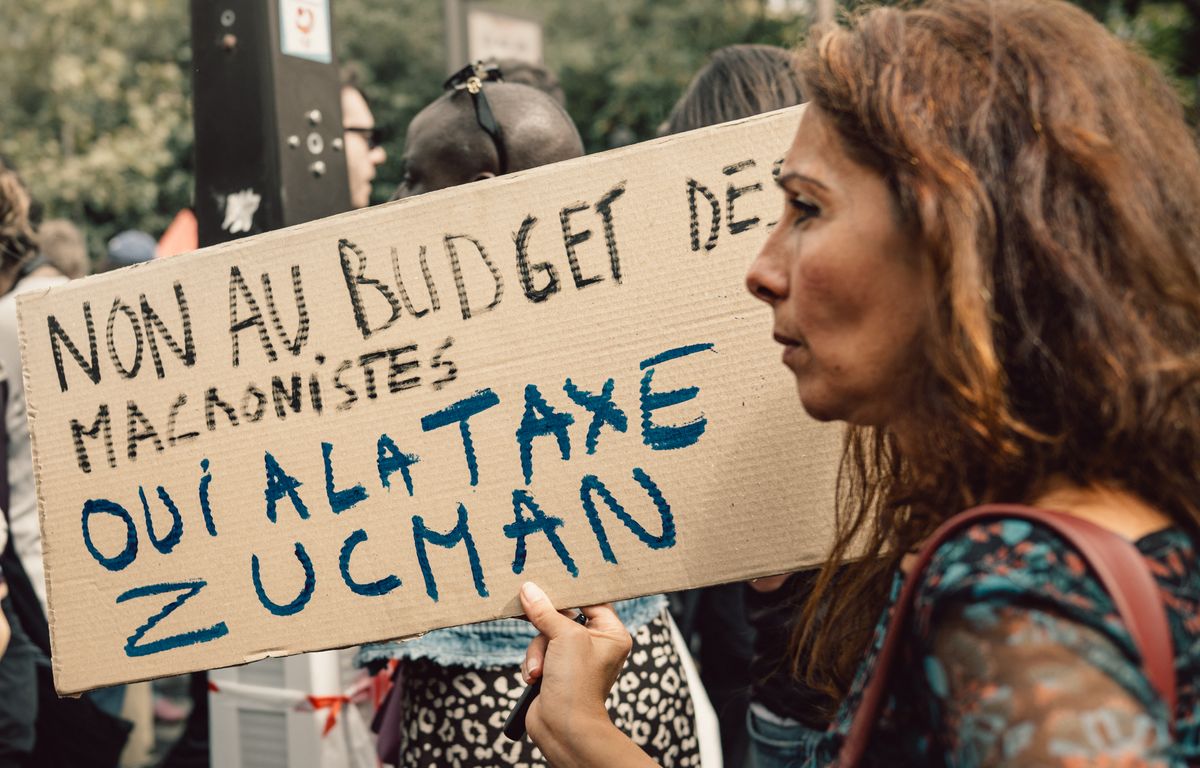 NON AU BUDGET DES
MACRONISTES
OUI A LA TAXE
ZUCMAN